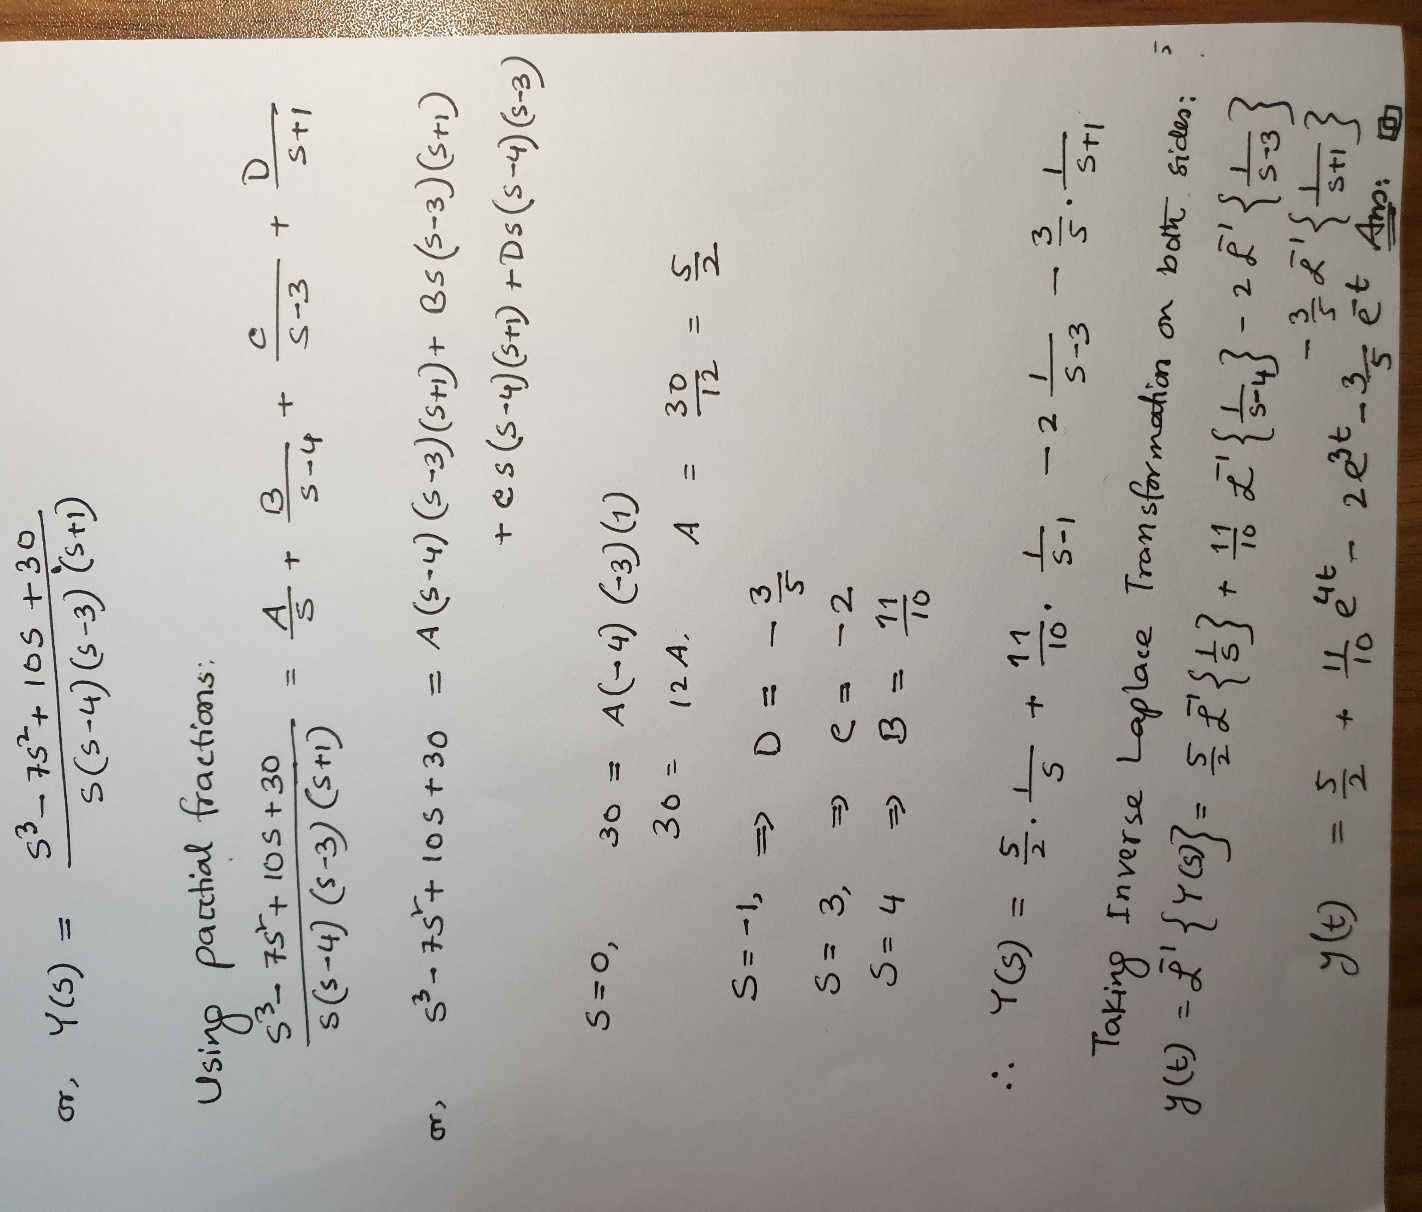 or, Y(s) = \frac{s^3 - 7s^2 + 10s + 30}{s(s-4)(s-3)(s+1)}
Using partial fractions:
\frac{s^3 - 7s^2 + 10s + 30}{s(s-4)(s-3)(s+1)} = \frac{A}{s} + \frac{B}{s-4} + \frac{C}{s-3} + \frac{D}{s+1}
or, s^3 - 7s^2 + 10s + 30 = A(s-4)(s-3)(s+1) + Bs(s-3)(s+1)
+ Cs(s-4)(s+1) + Ds(s-4)(s-3)
s=0, 30 = A(-4)(-3)(1)
30 = 12A. A = \frac{30}{12} = \frac{5}{2}
s=-1, ⇒ D = -\frac{3}{5}
s=3, ⇒ C = -2
s=4 ⇒ B = \frac{11}{10}
∴ Y(s) = \frac{5}{2} \cdot \frac{1}{s} + \frac{11}{10} \cdot \frac{1}{s-1} - 2 \frac{1}{s-3} - \frac{3}{5} \cdot \frac{1}{s+1}
Taking Inverse Laplace Transformation on both sides:
y(t) = ℒ^{-1}{Y(s)} = \frac{5}{2} ℒ^{-1}{\frac{1}{s}} + \frac{11}{10} ℒ^{-1}{\frac{1}{s-4}} - 2 ℒ^{-1}{\frac{1}{s-3}}
- \frac{3}{5} ℒ^{-1}{\frac{1}{s+1}}
y(t) = \frac{5}{2} + \frac{11}{10} e^{4t} - 2e^{3t} - \frac{3}{5} e^{-t} Ans: